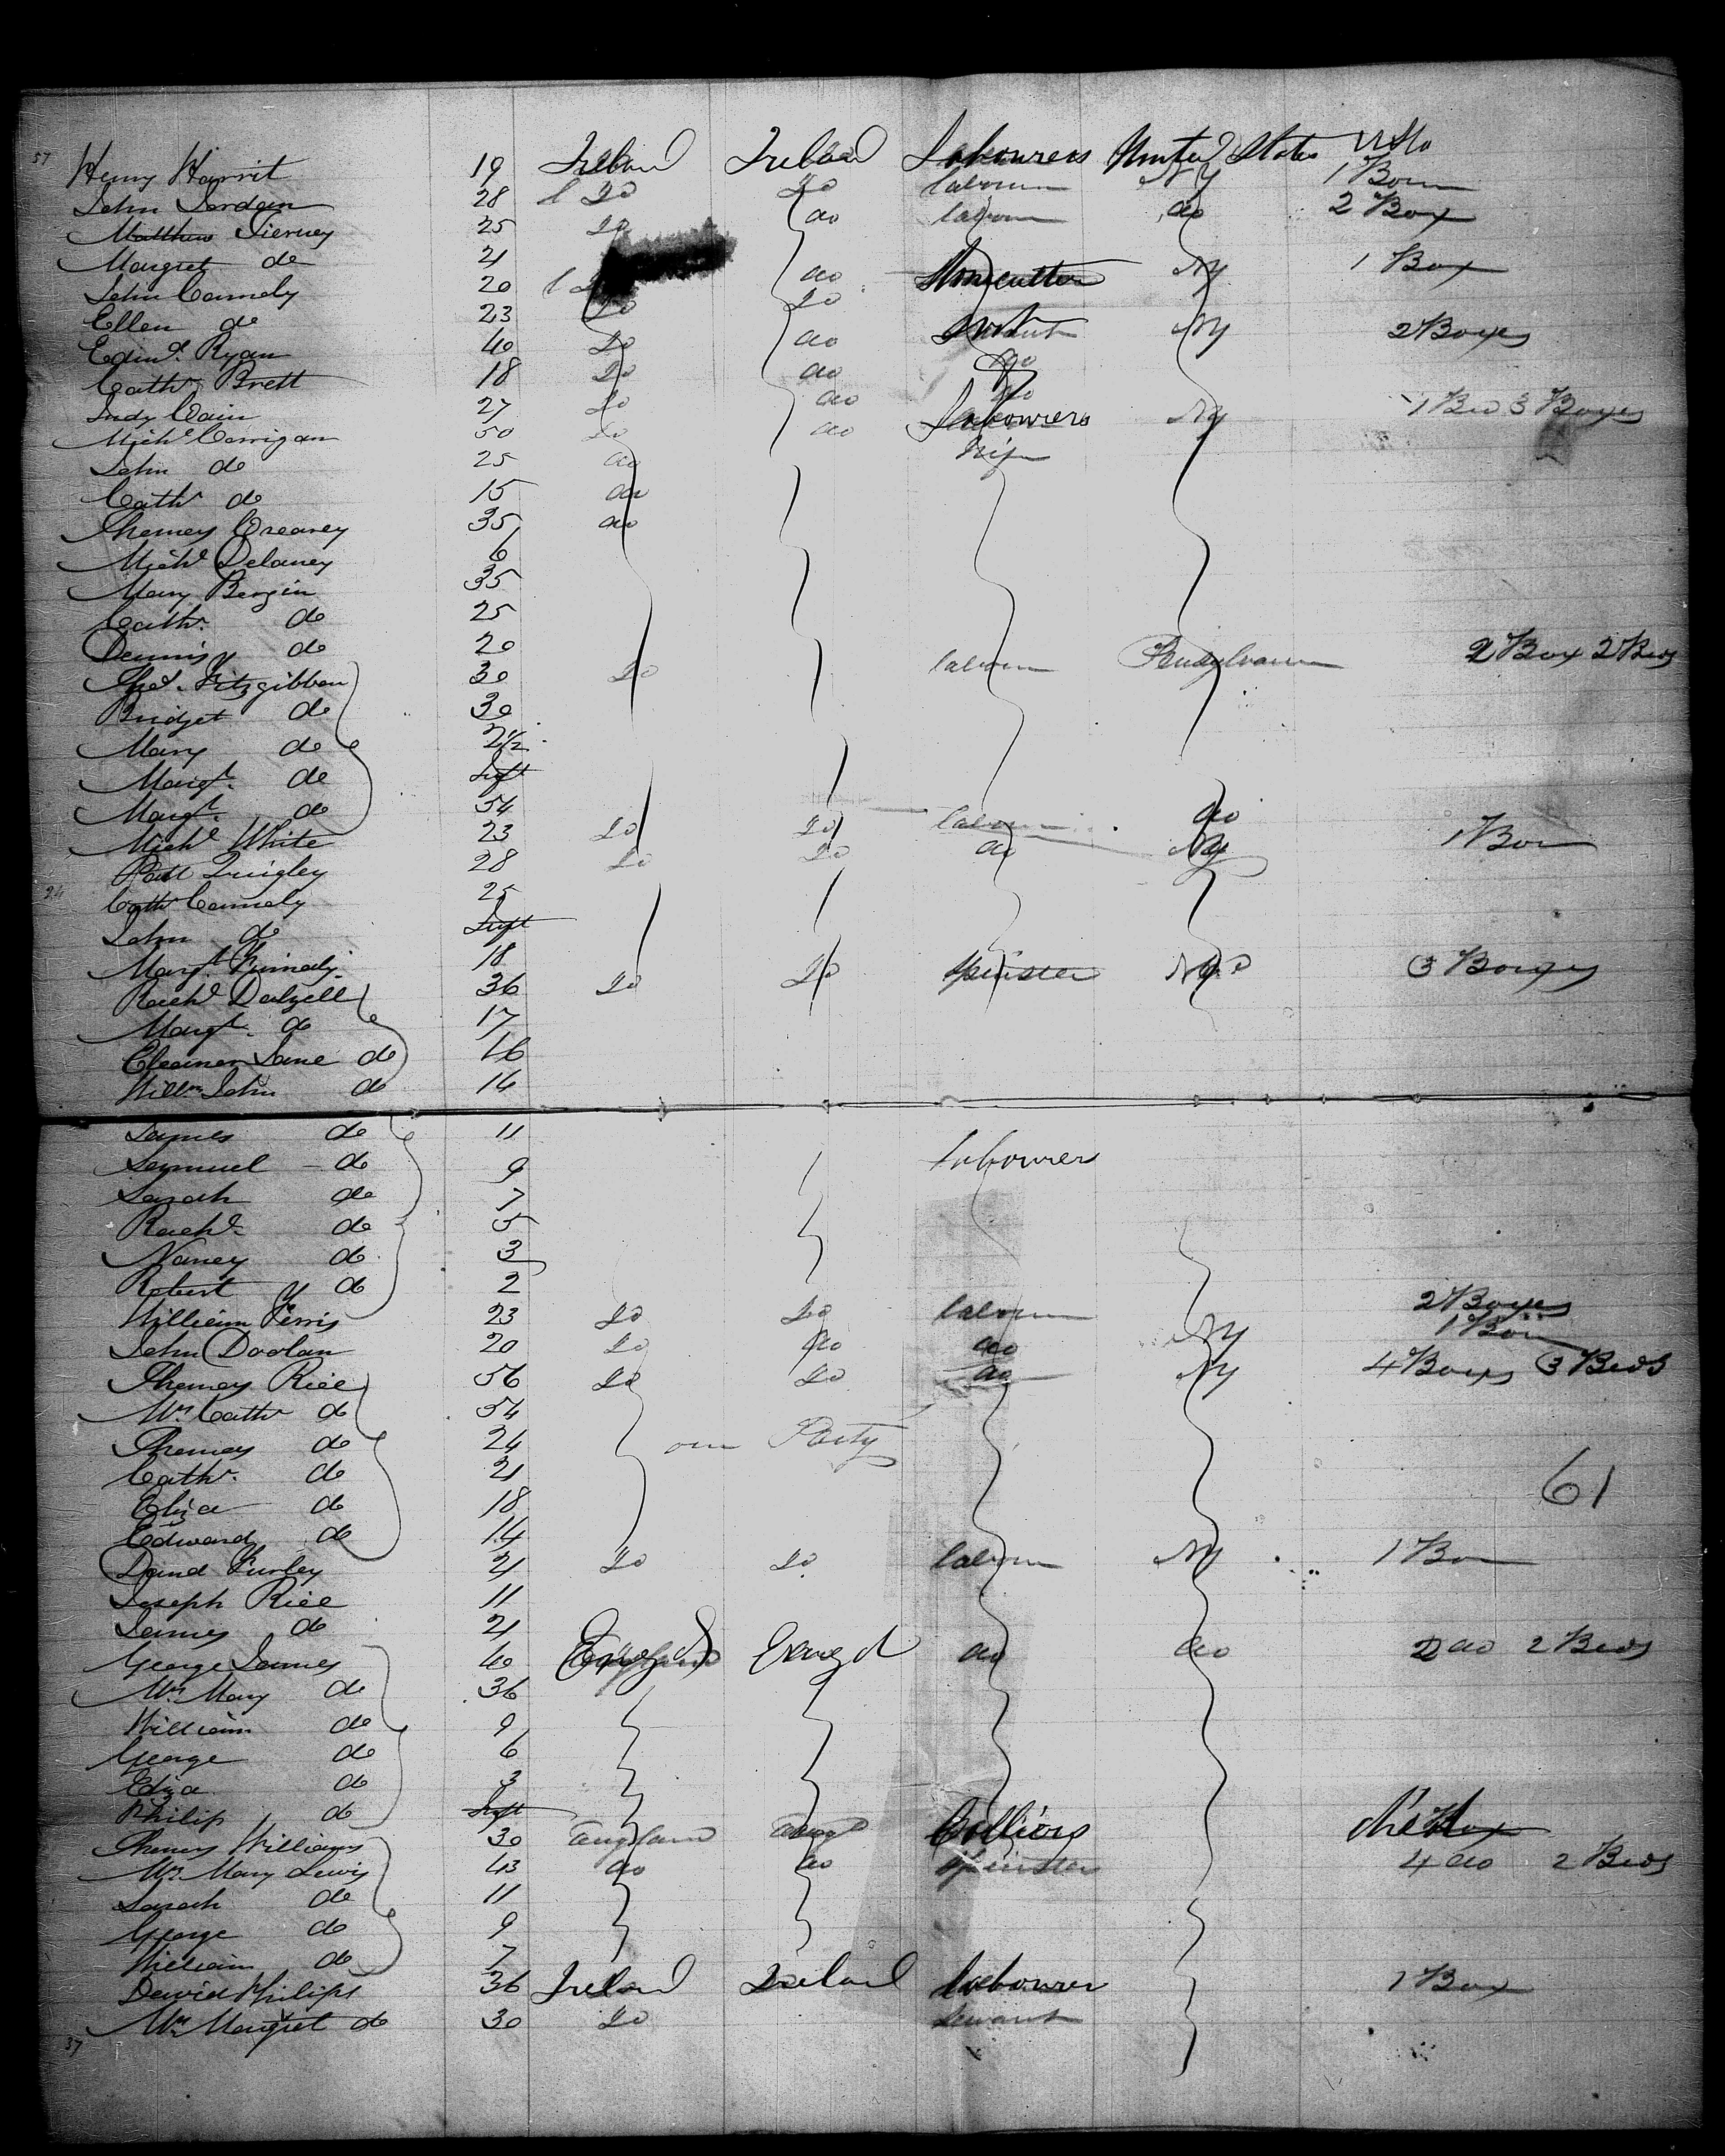 57
Henry Harrit 19 Ireland Ireland Labourers United States
John Jordan 28 Do Do labourer NY 1 Box
Matthew Tierney 25 Do do labourer do 2 Box
Margret do 21
John Connely 20 do Stonecutter NY 1 Box
Ellen do 23 Do Do
Edmd. Ryan 40 Do do Servant NY 2 Boxes
Cathr Brett 18 Do do do
Judy Cain 27 Do do do
Michl Corrigan 50 Do do Labourers NY 1 Bed 3 Boxes
John do 25 do
Cathr do 15 do
Thomas Creaney 35 do
Michl Delaney 6
Mary Bergin 35
Cathr. do 25
Dennis do 20
Thos. Fitzgibbon 30 Do labourer Pensylvania 2 Box 2 Beds
Bridget do 30
Mary do 2½
Margt. do Inft
Margt. do 54
Michl White 23 Do Do labourer do
Patt Quigley 28 Do Do do NY 1 Box
24 Cathr Connely 25
John do Inft
Margt. Kennedy 18
Rachl Dalzell 36 Do Do Spinster NY 3 Boxes
Margt. do 17
Eleanor Jane do 16
Willm John do 14
James do 11
Samuel do 9 labourers
Sarah do 7
Rachl. do 5
Nancy do 3
Robert do 2
William Ferris 23 Do Do labourer 2 Boxes
John Doolan 20 Do do do NY 1 Box
Thomas Rice 56 Do Do do NY 4 Boxes 3 Beds
Mrs Cathr do 54
Thomas do 24 one Party
Cathr. do 21
Eliza do 18 61
Edward do 14
David Hurley 21 Do Do labourer NY 1 Box
Joseph Rice 11
James do 21
George James 40 England do do 2 do 2 Beds
Mrs Mary do 36
William do 9
George do 6
Eliza do 3
Philip do Inft
Thomas Williams 30 England Colliers
Mrs Mary Lewis 43 do do Spinster 4 do 2 Beds
Sarah do 11
George do 9
William do 7
David Philips 36 Ireland Ireland labourer 1 Box
Mrs Margret do 30 Do Servant
37